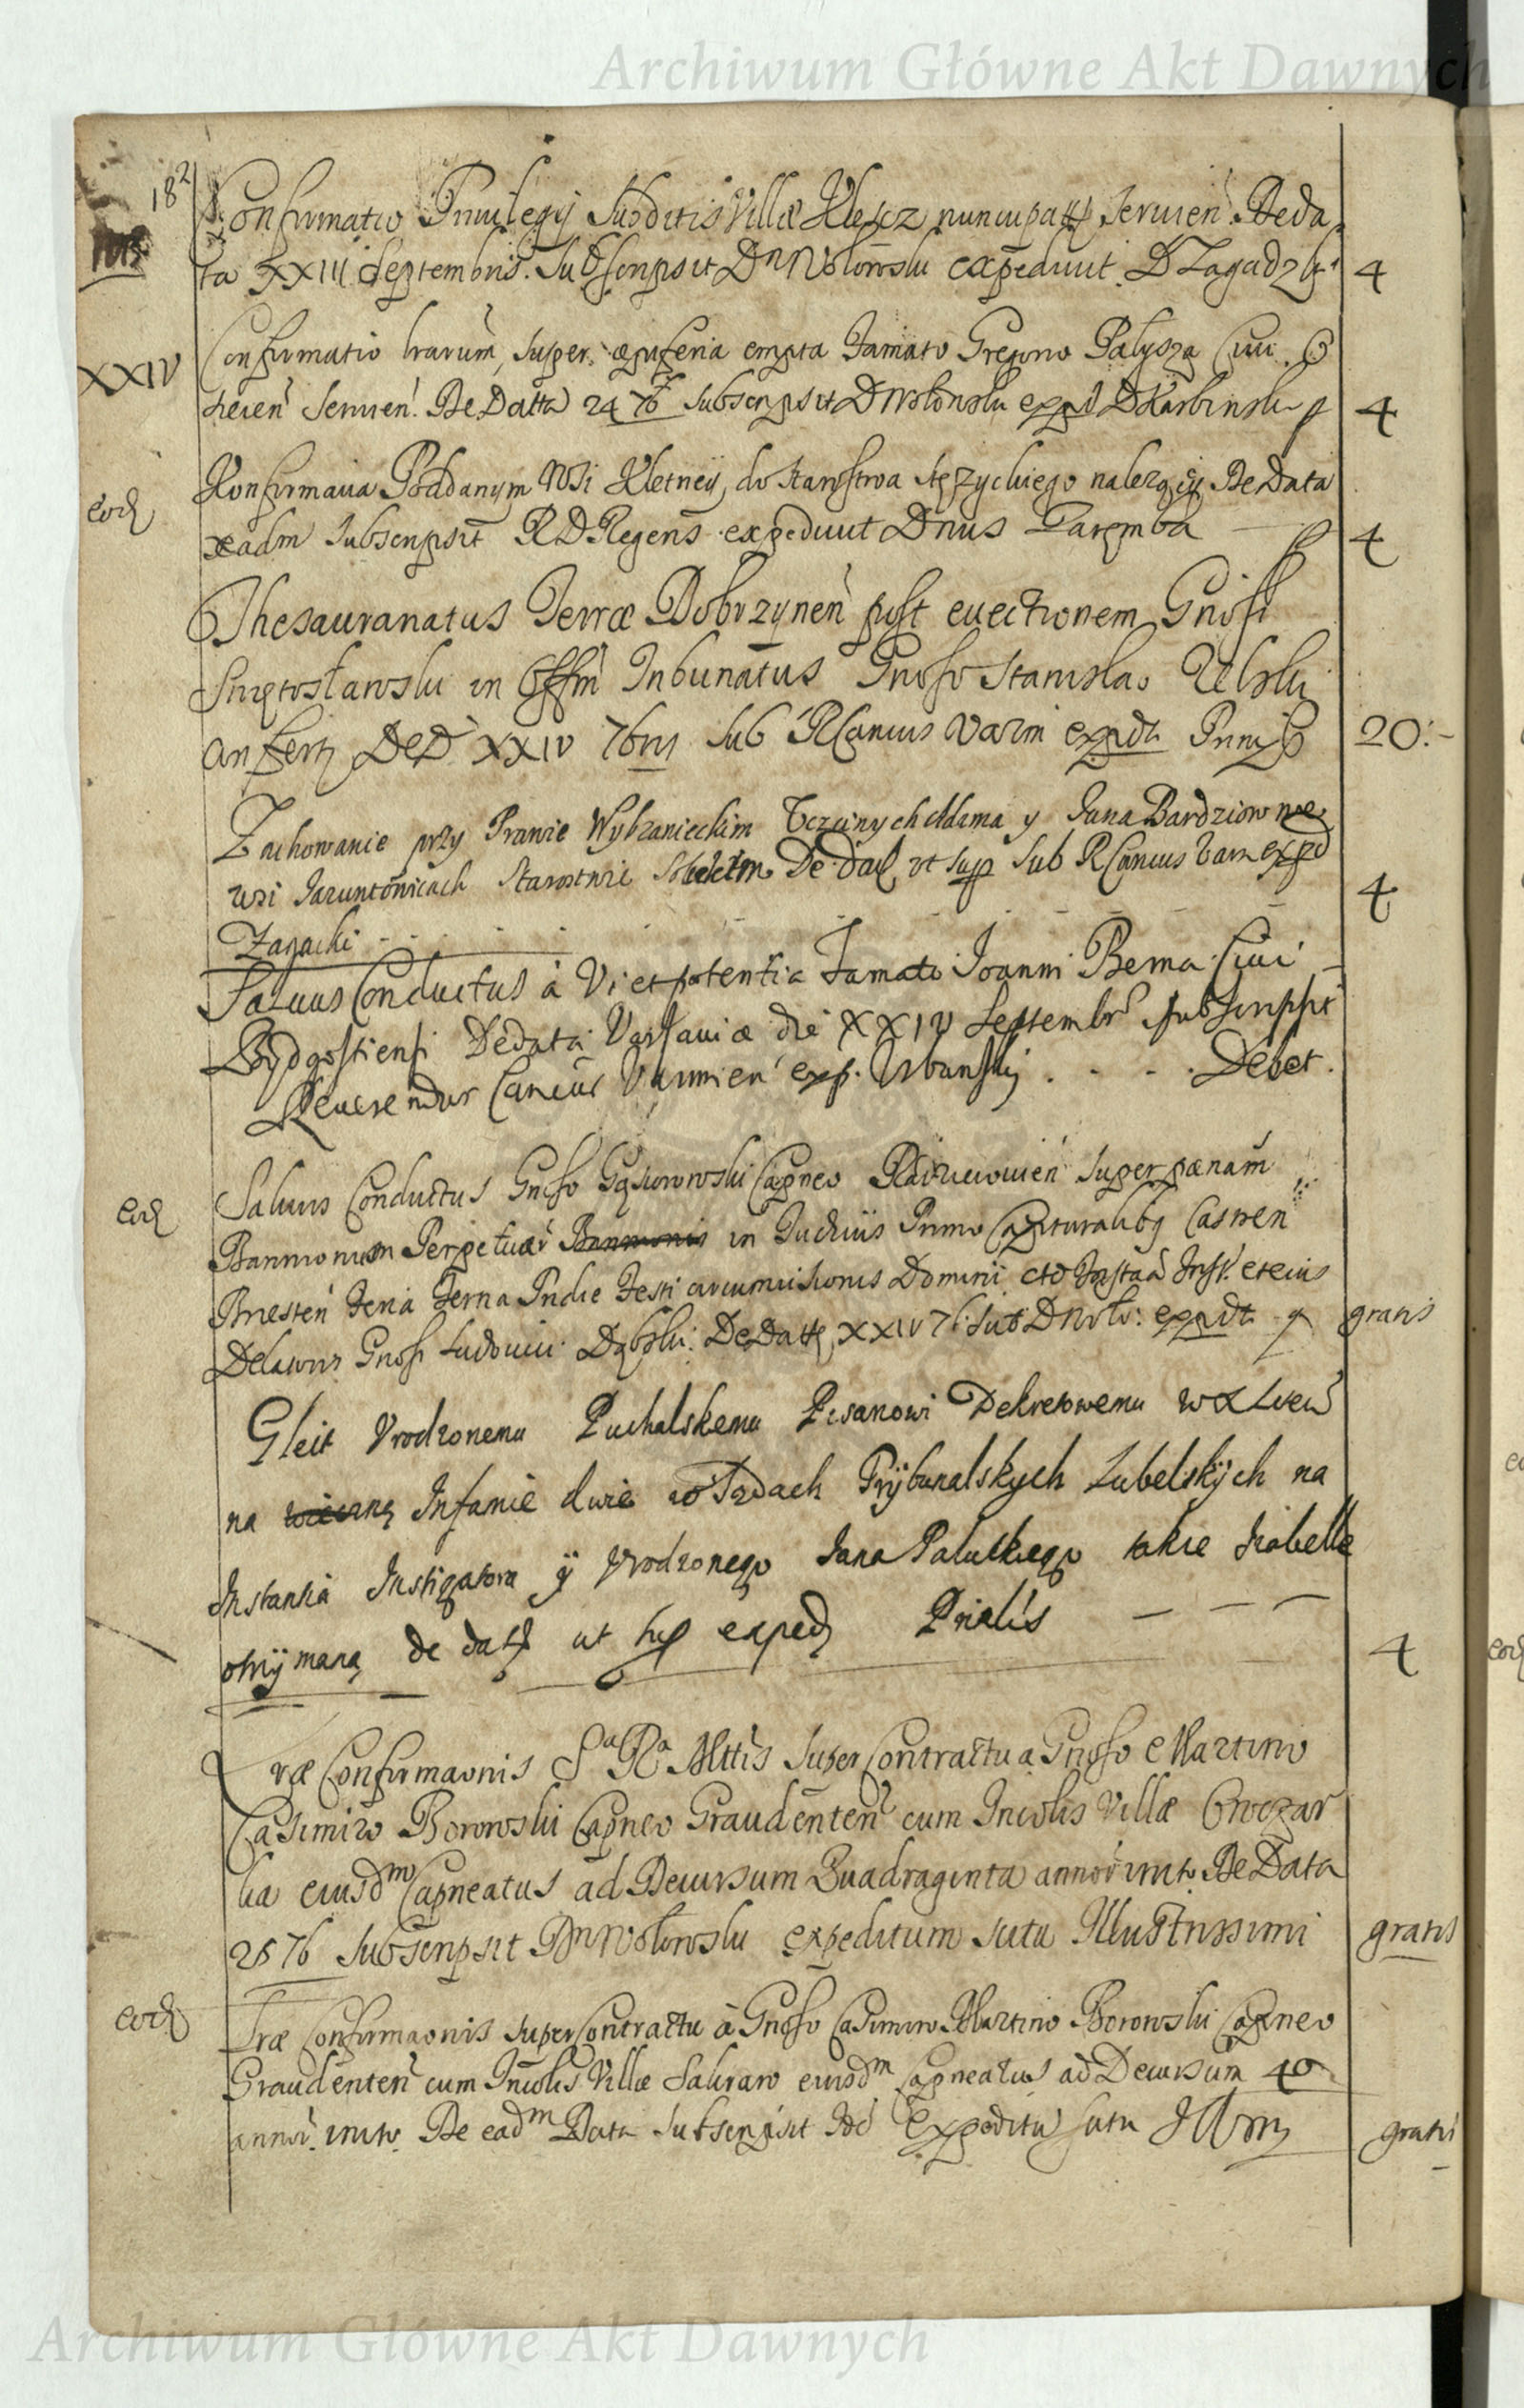 Archiwum Główne Akt Dawnych
182
Confirmatio Privilegij Subditis Villæ Klescz nuncupatæ Servien. De da
ta XXIII Septembris. Subscripsit Dn Wolowski expedivit D Zagadzki 4
XXIV Confirmatio lrarum super empta Famato Gregorio Palysza Civi
Servien. De Datta 24 7b subscripsit D Wolowski exped D Karbinski 4
eod Konfirmacia Poddanym Wsi Kletney, do Starostwa Stęzyckiego nalezącey De Data
eadm subscripsit R D Regens expedivit Dnus Zaremba 4
Thesauranatus Terræ Dobrzynen post evectionem Gnosi
Swiętosławski in Offm Tribunatus Gnoso Stanislao Ulski
confertr De D XXIV 7bris sub R Cancius Varm expedt 20:-
Zachowanie przy Prawie Wybranieckim Uczciwych Adama y Jana Bardziow we
wsi Jaruntowicach Starostwie De dat ut sup sub R Cancius Varm exped
Zapacki 4
Salvus Conductus à Vi et potentia Famato Joanni Berna Civi
Bydgostiensi De data Varsaviæ die XXIV Septembr subscripsit
Reverendus Cancius Varmien exp. Urbansky . - - . Debet.
eod Salvus Conductus Gnoso Gąsiorowski Capneo super pænam
Bannionum Perpetuæ Bannionis in Iudiciis Primo Capturalibq Castren
Bresten Feria Terna Pridie Festi circumcisionis Domini ad Instaã Inst. et eius
Delatoris Gnosi Ludovici Dąbski. De Datt XXIV 7b. sub D Woło: expedt gratis
Gleit Urodzonemu Puchalskemu Pisarowi Dekretowemu
na wieczną Infamie dwie w Sądach Tryjbunalskych Lubelskÿch na
Instantia Instigatora ÿ Urodzonego Jana Paluckiego takze Isabelle
otrÿmaną de datt ut sup exped Prialis 4
Lræ Confirmaonis Sa Ra Mttis super Contractu a Gnoso Martino
Casimiro Borowski Capneo Graudenten cum Incolis Villæ Owczar
ka eiusdm Capneatus ad Decursum Quadraginta annor inito De Data
25 7b subscripsit Dn Wolowski expeditum scitu Illustrissimi gratis
eod Lræ Confirmaonis super Contractu à Gnoso Casimiro Martino Borowski Capneo
Graudenten cum Incolis Villæ Sakraw eiusdm Capneatus ad Decursum 40
annor. inito. De eadm Data subscripsit Idẽ Expeditũ scitu Illmi gratis
Archiwum Główne Akt Dawnych